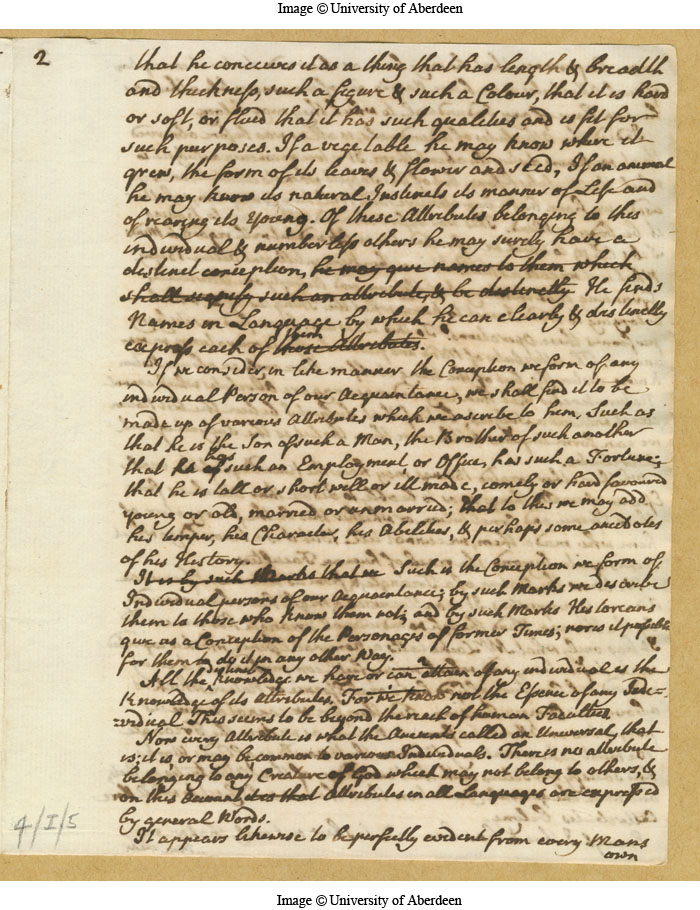 Image © University of Aberdeen
2
that he conceives it as a thing that has length & breadth
and thickness, such a figure & such a Colour, that it is hard
or soft, or fluid that it has such qualities and is fit for
such purposes. If a vegetable he may know where it
grew, the form of its leaves & flower and seed, If an animal
he may know its natural Instincts its manner of Life and
of rearing its Young. Of these Attributes belonging to this
individual & numberless others he may surely have a
distinct conception, he may give names to them which
shall signify such an attribute, & be distinctly He finds
Names in Language by which he can clearly & distinctly
express each of them those Attributes.
If we consider, in like manner the Conception we form of any
individual Person of our Acquaintance, we shall find it to be
made up of various Attributes which we ascribe to him, Such as
that he is the Son of such a Man, the Brother of such another
that he has such an Employment or Office, has such a Fortune;
that he is tall or short well or ill made, comely or hard favoured
young or old, married or unmarried; that to this we may add
his temper, his Character, his Abilities, & perhaps some anecdotes
of his History.
It is by such Marks that we Such is the Conception we form of
Individual persons of our Acquaintance; by such Marks we describe
them to those who know them not; and by such Marks Historians
give us a Conception of the Personages of former Times; nor is it possible
for them to do it in any other Way.
All the distinct Knowledge we have or can attain of any individual is the
Knowledge of its Attributes. For we know not the Essence of any Indi-
vidual This seems to be beyond the reach of human Faculties
Now every Attribute is what the Ancients called an Universal, that
is; it is, or may be common to various Individuals. There is no attribute
belonging to any Creature of God which may not belong to others, &
on this Account it is that Attributes in all Languages are expressed
by general Words.
It appears likewise to be perfectly evident from every Mans
own
4/I/5
Image © University of Aberdeen